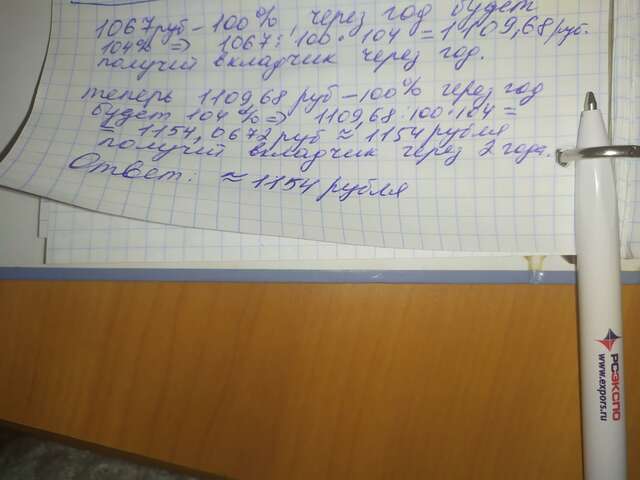 1067 руб – 100%, через год будет
104% => 1067 : 100 · 104 = 1109,68 руб.
получит вкладчик через год.
теперь 1109,68 руб – 100% через год
будет 104% => 1109,68 : 100 · 104 =
= 1154,0672 руб ≈ 1154 рубля
получит вкладчик через 2 года.
Ответ: ≈ 1154 рубля
РСЭКСПО
www.expors.ru